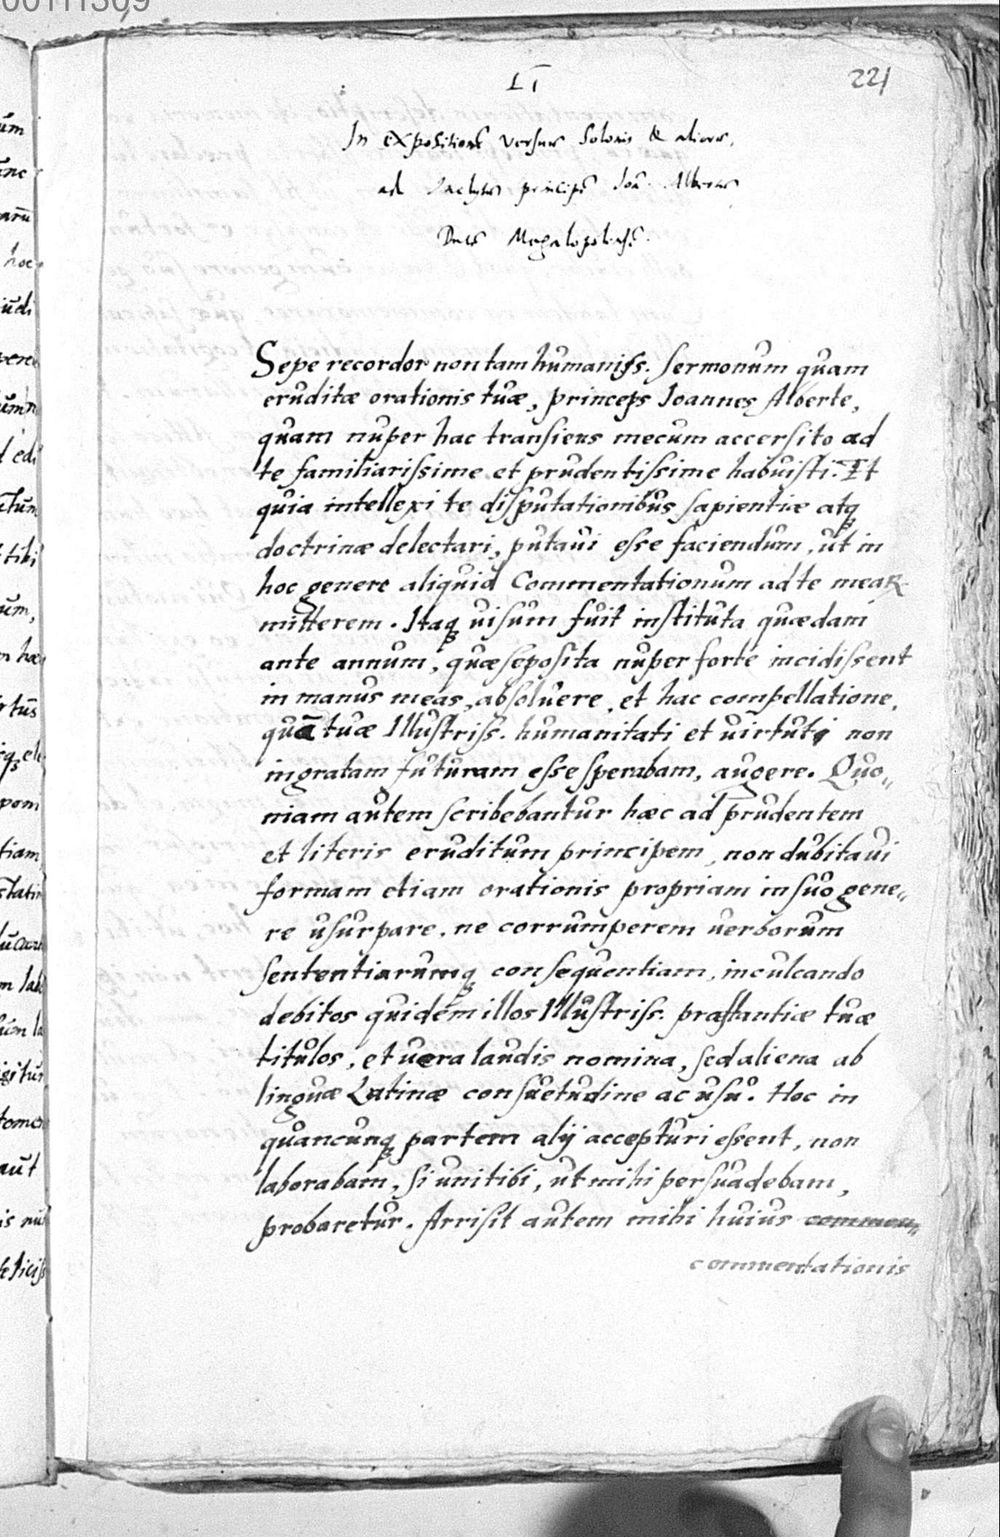 00111309
LI
221
In expositione versuum Solonis & aliorum,
ad Inclytum principē Ioā. Albertum
Ducē Megalopolensē.
Sepe recordor non tam humaniss. sermonum quam
eruditæ orationis tuæ, princeps Ioannes Alberte,
quam nuper hac transiens mecum accersito ad
te familiarissime et prudentissime habuisti. Et
quia intellexi te disputationibus sapientiæ atq
doctrinæ delectari, putaui esse faciendum, ut in
hoc genere aliquid Commentationum ad te mearꝝ
mitterem. Itaq uisum fuit instituta quædam
ante annum, quæ seposita nuper forte incidissent
in manus meas, absoluere, et hac compellatione,
quā tuæ Illustriss. humanitati et uirtuti non
ingratam futuram esse sperabam, augere. Quo„
niam autem scribebantur hæc ad prudentem
et literis eruditum principem, non dubitaui
formam etiam orationis propriam in suo gene„
re usurpare, ne corrumperem uerborum
sententiarumq consequentiam, inculcando
debitos quidem illos Illustriss. præstantiæ tuæ
titulos, et uera laudis nomina, sed aliena ab
linguæ Latinæ consuetudine ac usu. Hoc in
quancunq partem alij accepturi essent, non
laborabam, si uni tibi, ut mihi persuadebam,
probaretur. Arrisit autem mihi huius commen„
commentationis